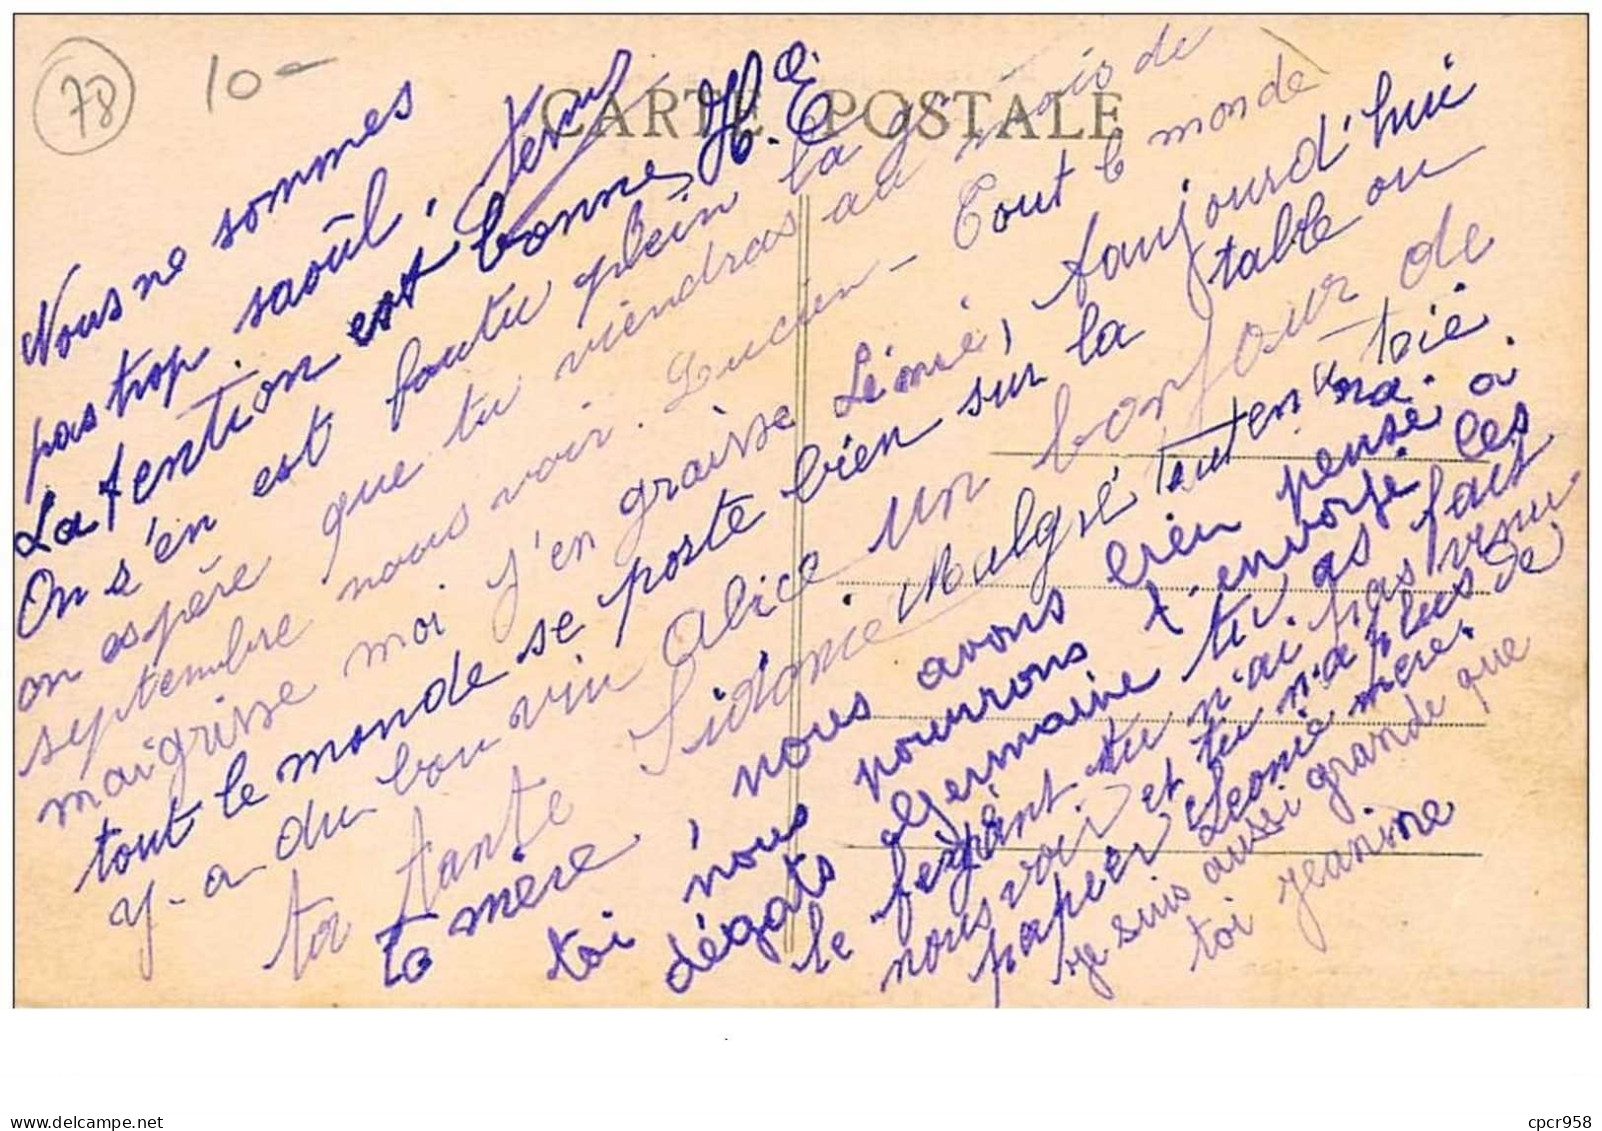 78
10-
CARTE POSTALE
Nous ne sommes
pas trop saoûl,
La tention est bonne, H. E.
On s'en est foutu plein la
on espère que tu viendras au mois de
septembre nous voir. Lucien - Tout le monde
maigrisse moi j'en graisse Léonie, Aujourd'hui
tout le monde se poste bien sur la table ou
y-a du bon vin Alice un bonjour de
ta tante Sidonie Malgré
ta mère
nous avons bien pensé a
toi, nous pourrons t'envoyé les
dégats Germaine tu as fait
le feignant tu n'ai pas venu
nous voir et tu n'a plus de
papier Léonie mère.
Je suis aussi grande que
toi Jeanine
delcampe.net
cpcr958